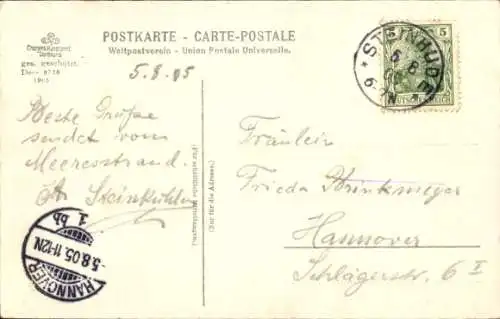 POSTKARTE - CARTE-POSTALE
Weltpostverein - Union Postale Universelle.
ges. geschützt.
1905
5.8.05
Beste Grüße
sendet vom
Meeresstrand.
Steinkühler
(Nur für die Adresse.)
Fräulein
Frieda Brinkmeyer
Hannover
Schlägerstr. 6 I
5 5
DEUTSCHES REICH
* STEINHUDE *
5 8
6-7N
HANNOVER
5.8.05.11-12N
1. bb